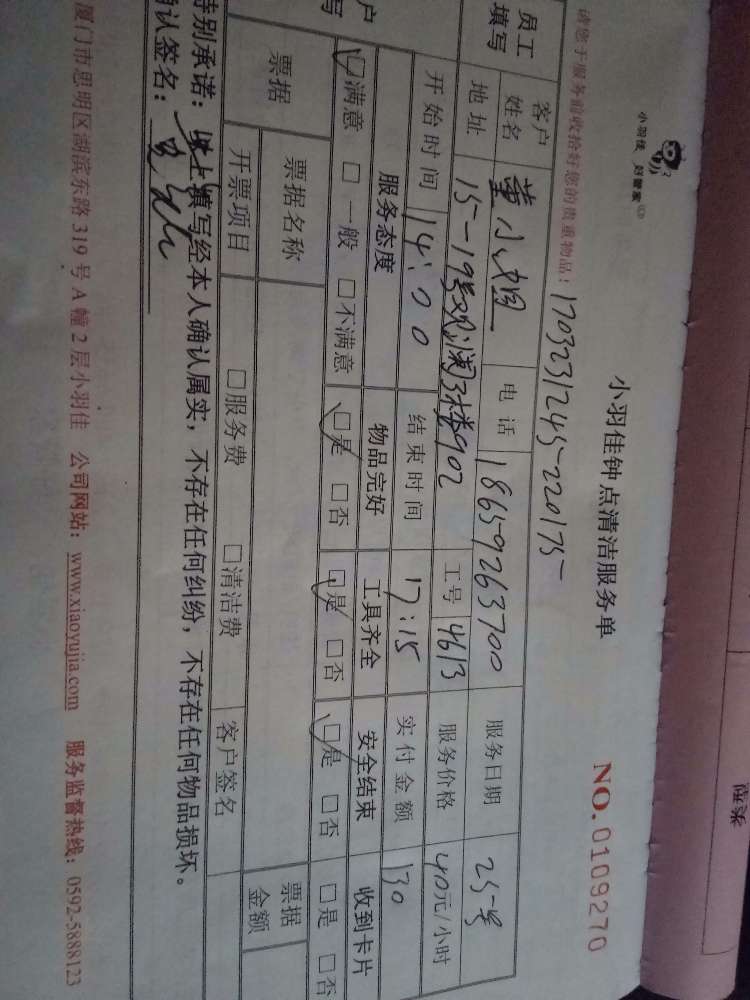 小羽佳 好管家
小羽佳钟点清洁服务单
NO. 0109270
请您于服务前收拾好您的贵重物品： 1703231245-220175
员工填写
客户姓名 董小姐 电话 18659263700 服务日期 25号
地址 15-19号观澜3楼902 工号 4613 服务价格 40元/小时
开始时间 14:00 结束时间 17:15 实付金额 130
户
写
服务态度 物品完好 工具齐全 安全结束 收到卡片
□满意 □一般 □不满意 □是 □否 □是 □否 □是 □否 □是 □否
票据 票据名称 票据金额
开票项目 □服务费 □清洁费 客户签名
特别承诺：以上填写经本人确认属实，不存在任何纠纷，不存在任何物品损坏。
确认签名：
厦门市思明区湖滨东路 319 号 A 幢 2 层小羽佳 公司网站：www.xiaoyujia.com 服务监督热线：0592-5888123